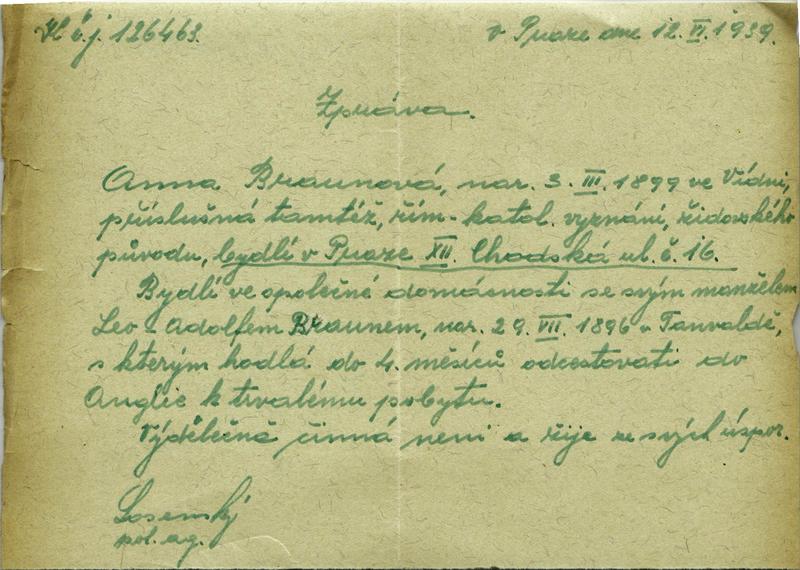 K č.j. 126463.
v Praze dne 12. VI. 1939.
Zpráva.
Anna Braunová, nar. 3. III. 1899 ve Vídni,
příslušná tamtéž, řím-katol. vyznání, židovského
původu, bydlí v Praze XII. Chodská ul. č. 16.
Bydlí ve společné domácnosti se svým manželem
Leo - Adolfem Braunem, nar. 29. VII. 1896 v Tanvaldě,
s kterým hodlá do 4. měsíců odcestovati do
Anglie k trvalému pobytu.
Výdělečně činná není a žije ze svých úspor.
Losenský
pol. ag.